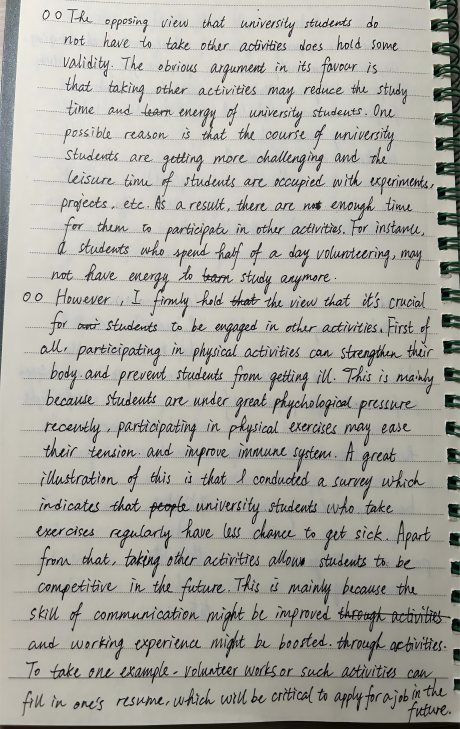 OO The opposing view that university students do
not have to take other activities does hold some
validity. The obvious argument in its favour is
that taking other activities may reduce the study
time and learn energy of university students. One
possible reason is that the course of university
students are getting more challenging and the
leisure time of students are occupied with experiments,
projects, etc. As a result, there are not enough time
for them to participate in other activities. For instance,
a students who spend half of a day volunteering, may
not have energy to learn study anymore.
OO However, I firmly hold that the view that it's crucial
for students to be engaged in other activities. First of
all, participating in physical activities can strengthen their
body and prevent students from getting ill. This is mainly
because students are under great phychological pressure
recently, participating in physical exercises may ease
their tension and improve immune system. A great
illustration of this is that I conducted a survey which
indicates that people university students who take
exercises regularly have less chance to get sick. Apart
from that, taking other activities allows students to be
competitive in the future. This is mainly because the
skill of communication might be improved through activities
and working experience might be boosted through activities.
To take one example - volunteer works or such activities can
fill in one's resume, which will be critical to apply for a job in the
future.